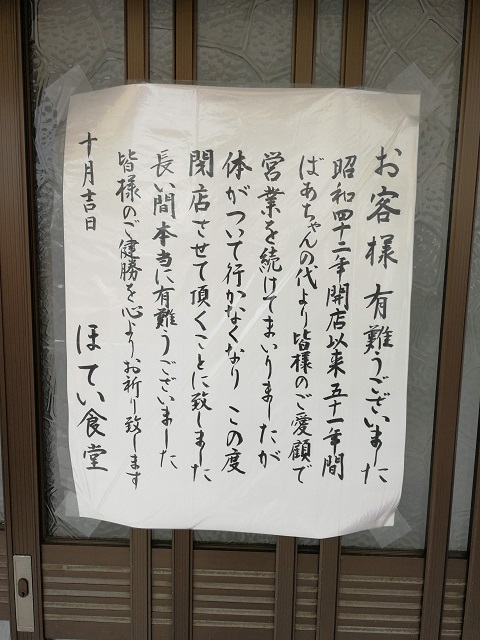 お客様 有難うございました
昭和四十二年開店以来 五十一年間
ばあちゃんの代より皆様のご愛顧で
営業を続けてまいりましたが
体がついて行かなくなり この度
閉店させて頂くことに致しました
長い間本当に有難うございました
皆様のご健勝を心よりお祈り致します
十月吉日
ほてい食堂